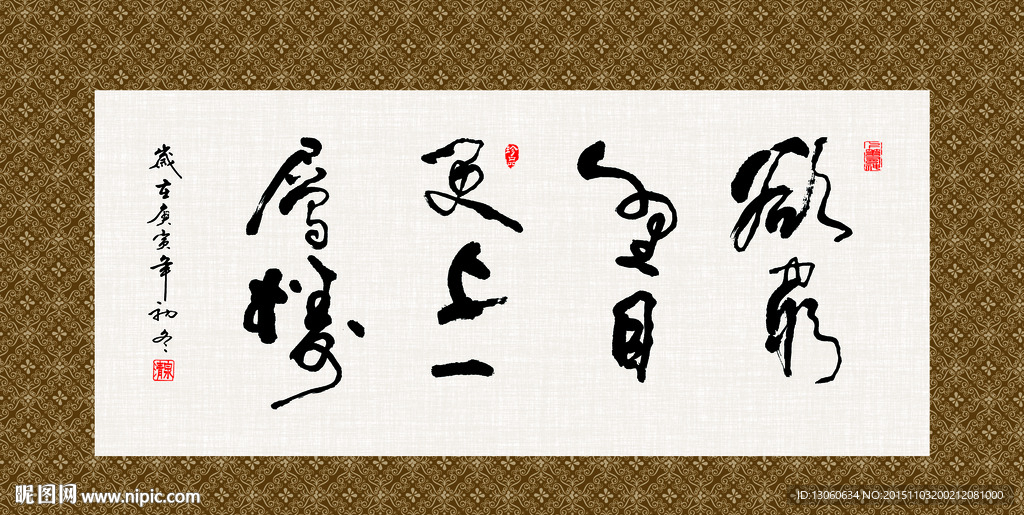 欲窮
千里目
更上一
層樓
歲在庚寅年初冬
珍品
昵图网 www.nipic.com
ID:13060634 NO:20151103200212081000